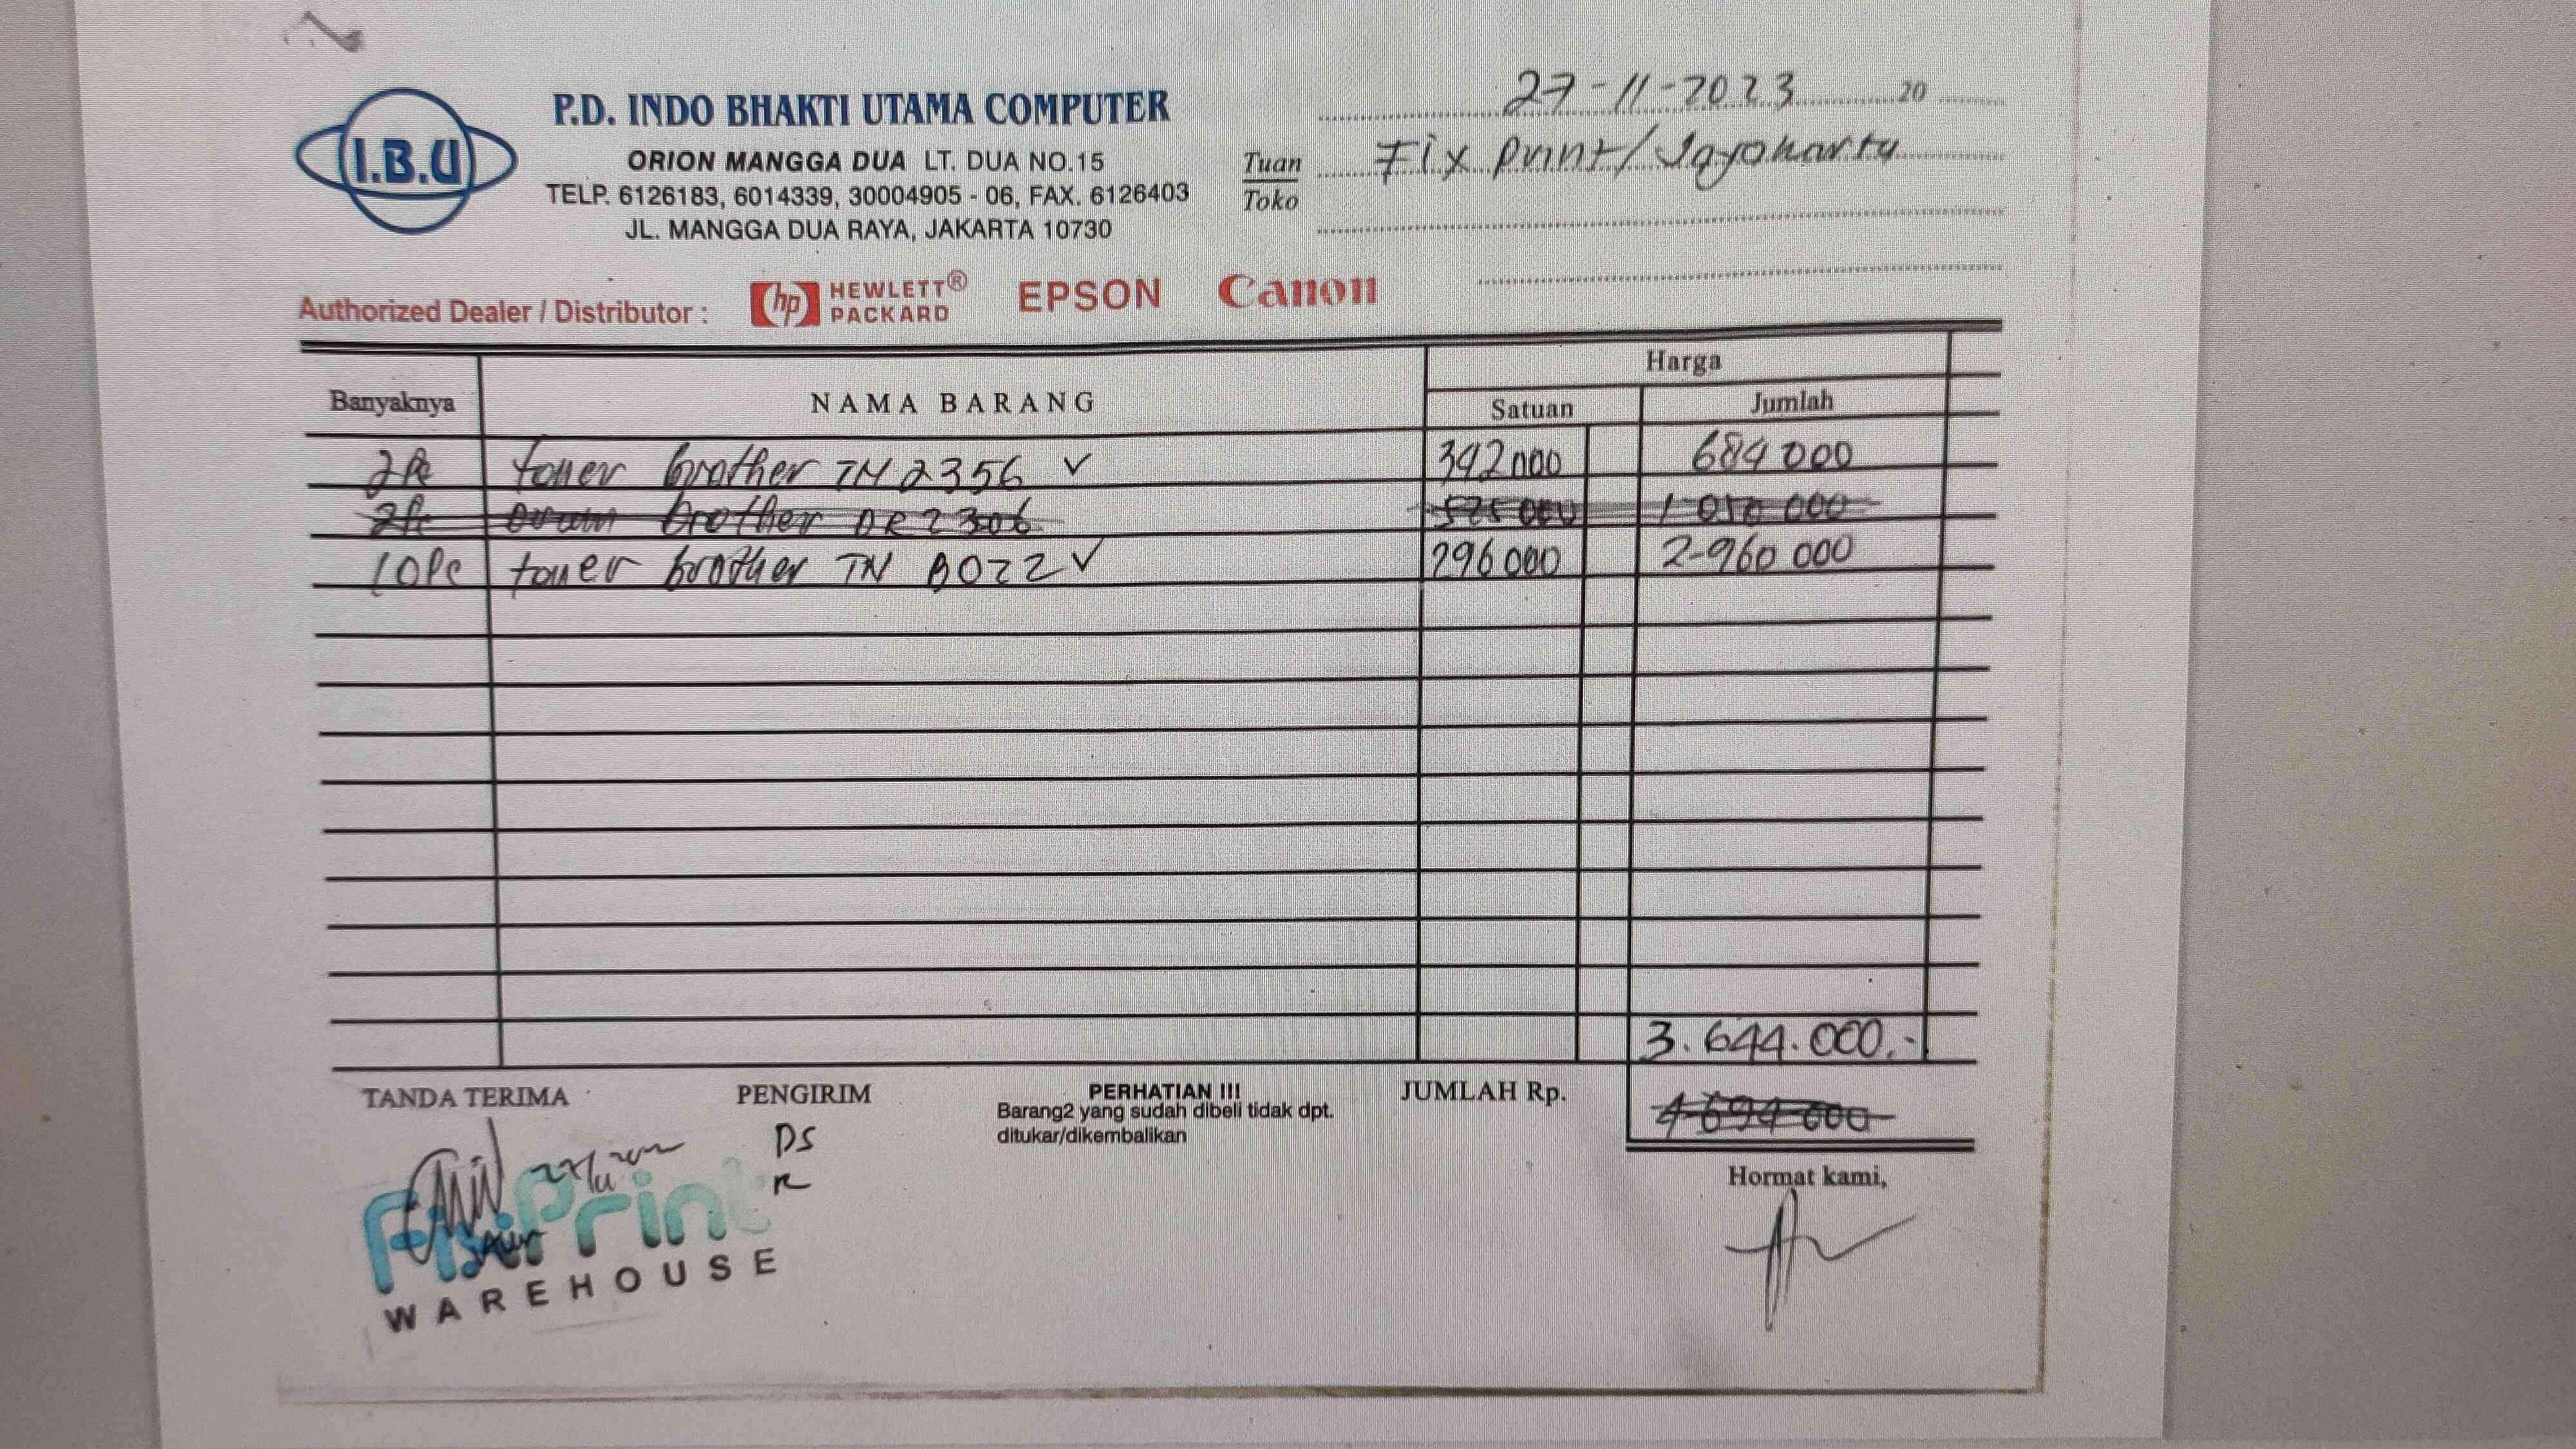 I.B.U
P.D. INDO BHAKTI UTAMA COMPUTER
ORION MANGGA DUA LT. DUA NO.15
TELP. 6126183, 6014339, 30004905 - 06, FAX. 6126403
JL. MANGGA DUA RAYA, JAKARTA 10730
27-11-2023 20
Tuan Fix Print/Jayakarta
Toko
Authorized Dealer / Distributor : hp HEWLETT® PACKARD EPSON Canon
Banyaknya NAMA BARANG Harga
Satuan Jumlah
2Pc toner brother TN 2356 ✓ 342000 684000
2Pc drum brother DR 2306 525000 1 050 000
10Pc toner brother TN B022 ✓ 296000 2-960 000
3.644.000.-
TANDA TERIMA PENGIRIM PERHATIAN !!! JUMLAH Rp. 4 694 000
Barang2 yang sudah dibeli tidak dpt.
ditukar/dikembalikan
DS
R
Hormat kami,
FixPrint
WAREHOUSE